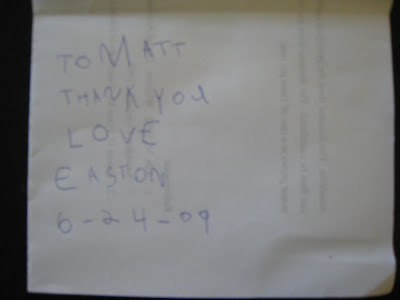 TO MATT
THANK YOU
LOVE
EASTON
6-24-09